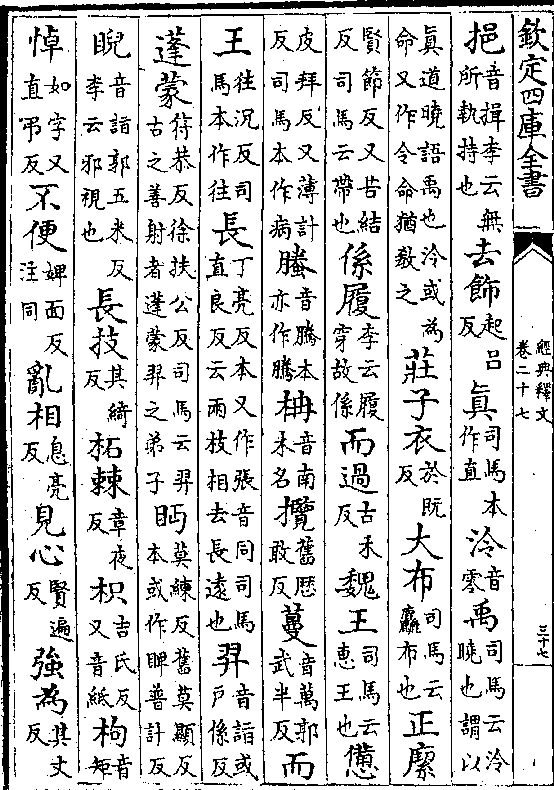 欽定四庫全書
經典釋文
卷二十七
三十七
挹音揖李云無所執持也去飾起呂反眞司馬本作直泠音零禹司馬云泠曉也謂以
眞道曉語禹也泠或為命又作令命猶敎之莊子衣於既反大布司馬云麤布也正緳
賢節反又苦結反司馬云帶也係履李云履穿故係而過古禾反魏王司馬云恵王也憊
皮拜反又薄計反司馬本作病螣音騰本亦作騰枏音南木名攬舊歴敢反蔓音萬郭武半反而
王往況反司馬本作往長丁亮反本又作張音同司馬直良反云兩枝相去長逺也羿音詣或戶係反
蓬蒙符恭反徐扶公反司馬云羿古之善射者蓬蒙羿之弟子眄莫練反舊莫顯反本或作睥普計反
睨音詣郭五米反李云邪視也長技其綺反柘棘章夜反枳吉氏反又音紙枸音矩
悼如字又直弔反不便婢面反注同亂相息亮反見心賢遍反強為其丈反